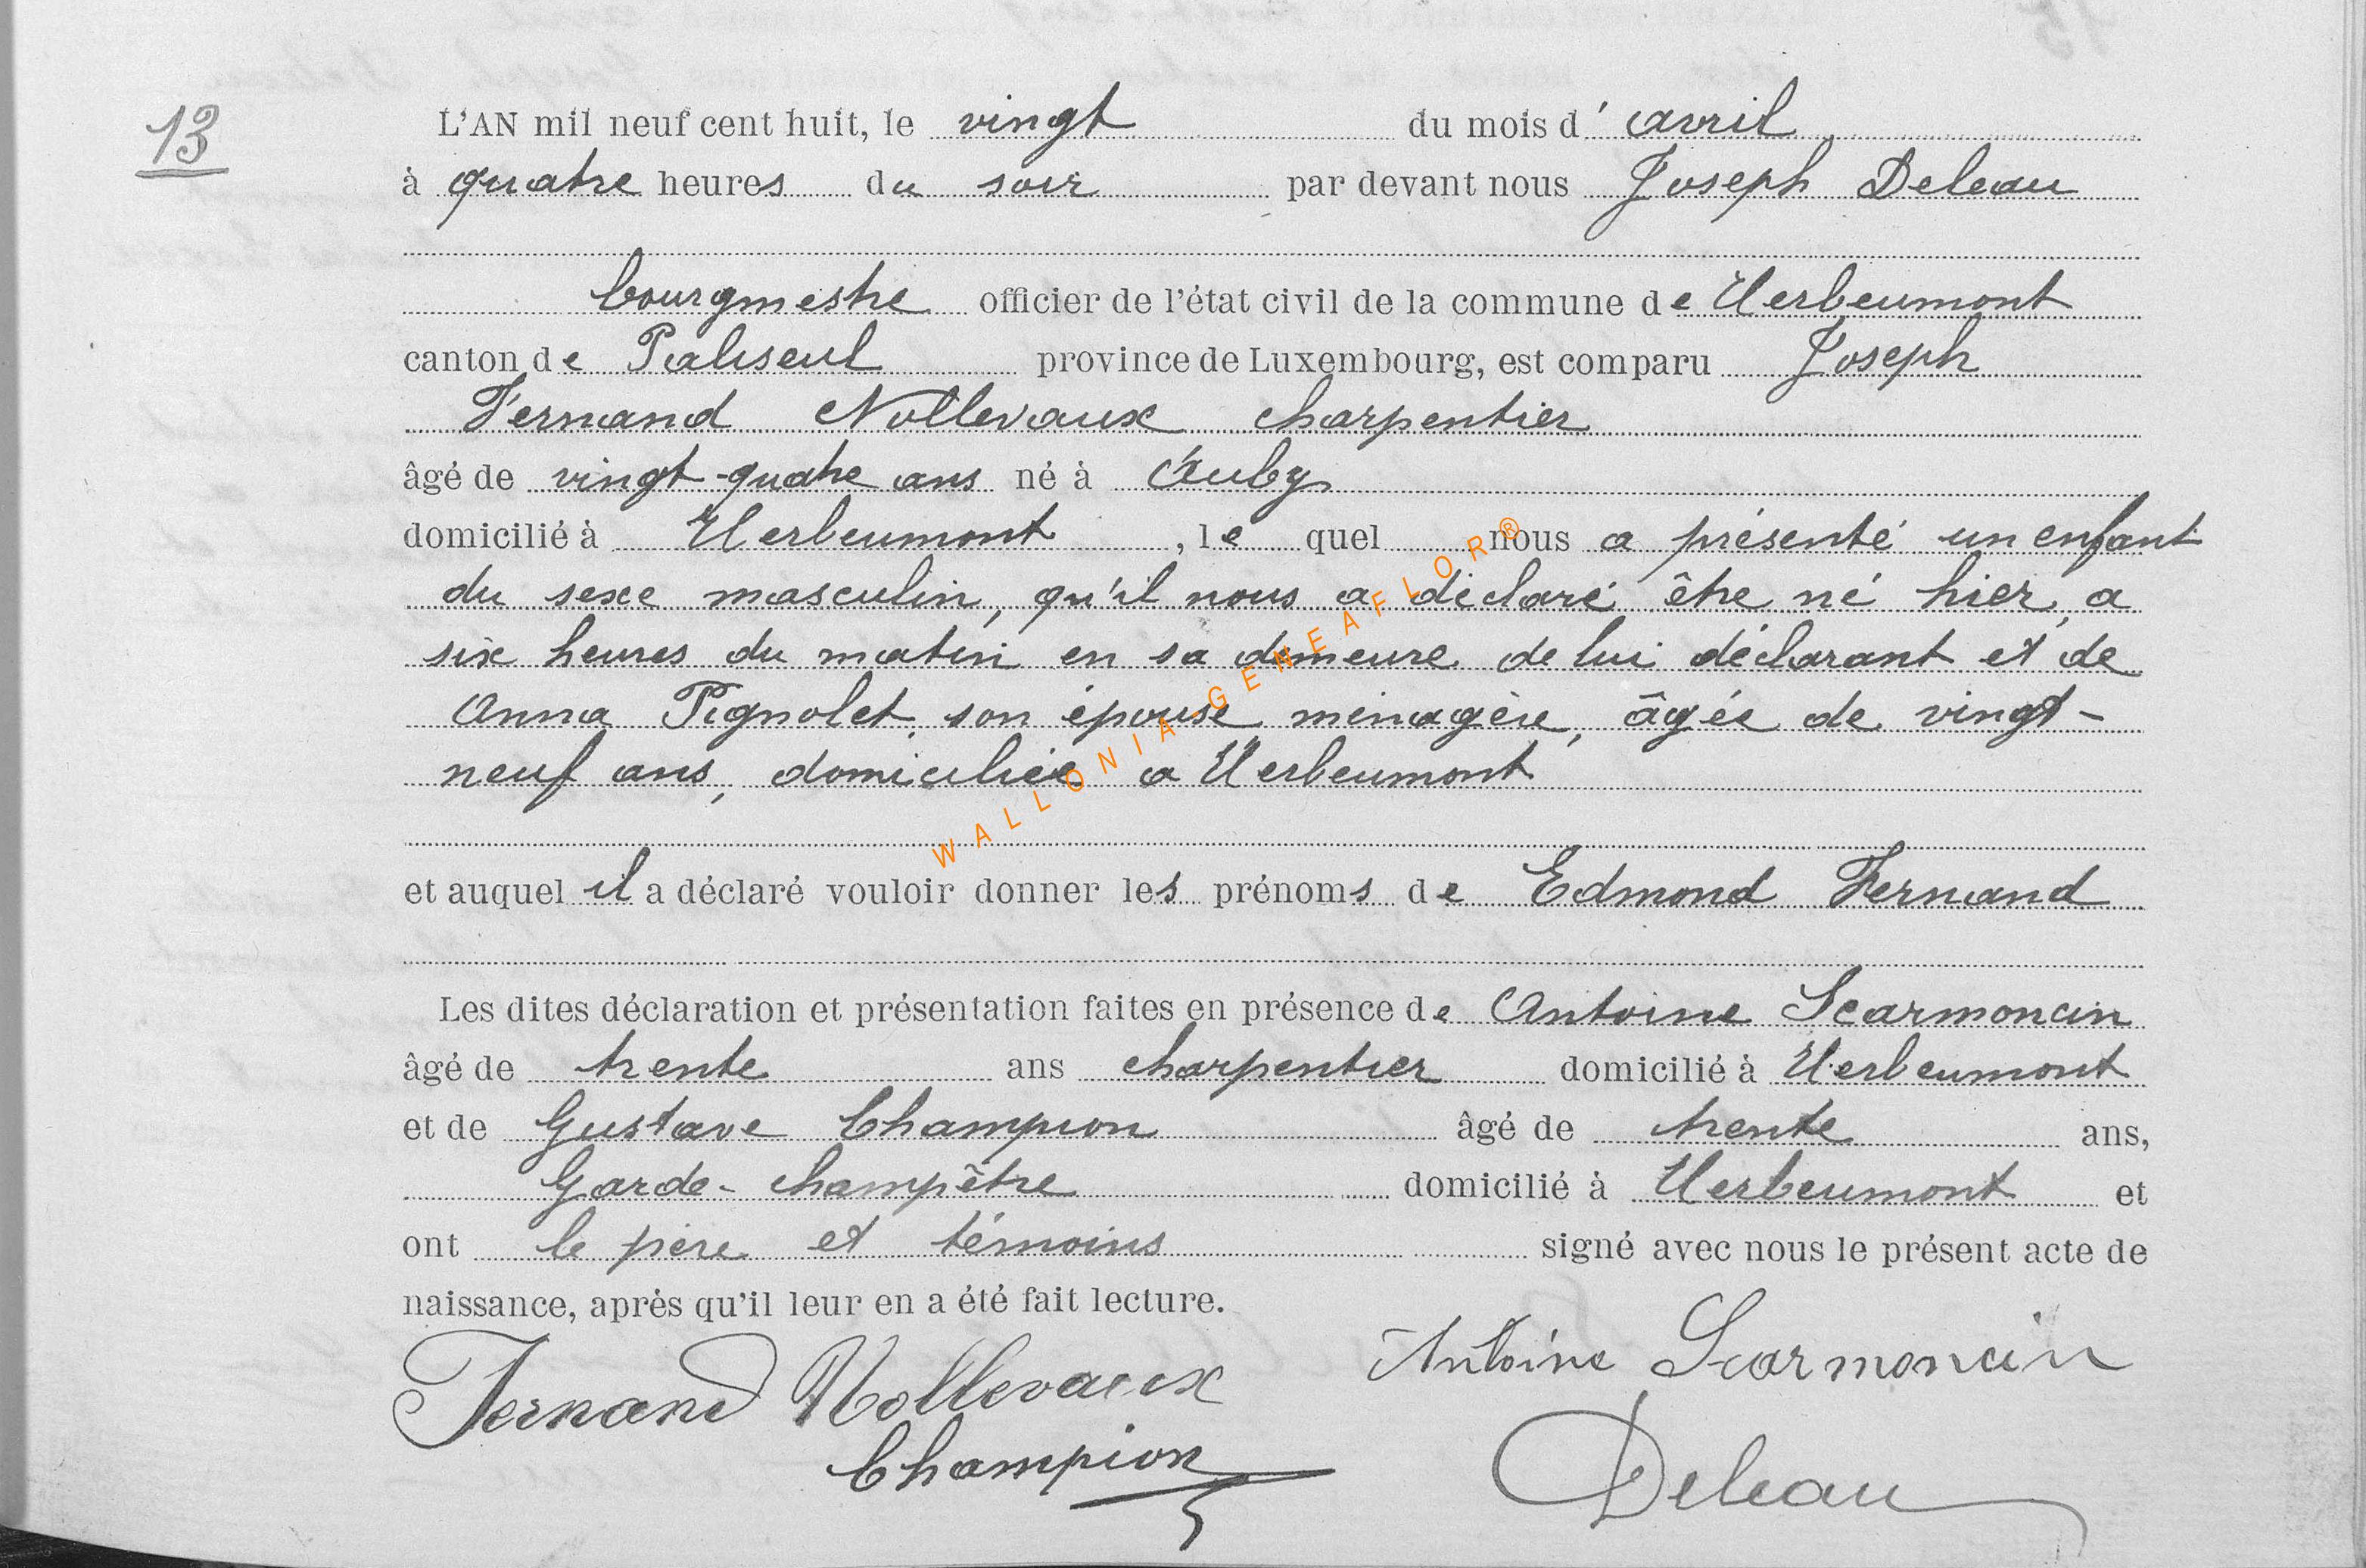 13
L'AN mil neuf cent huit, le vingt du mois d'avril
à quatre heures du soir par devant nous Joseph Deleau
bourgmestre officier de l'état civil de la commune de Herbeumont
canton de Paliseul province de Luxembourg, est comparu Joseph
Fernand Nollevaux charpentier
âgé de vingt-quatre ans né à Auby
domicilié à Herbeumont, lequel nous a présenté un enfant
du sexe masculin, qu'il nous a déclaré être né hier, a
six heures du matin en sa demeure de lui déclarant et de
Anna Pignolet, son épouse ménagère, âgée de vingt-
neuf ans, domiciliée a Herbeumont
et auquel il a déclaré vouloir donner les prénoms de Edmond Fernand
Les dites déclaration et présentation faites en présence de Antoine Scarmoncin
âgé de trente ans charpentier domicilié à Herbeumont
et de Gustave Champion âgé de trente ans,
Garde-champêtre domicilié à Herbeumont et
ont le père et témoins signé avec nous le présent acte de
naissance, après qu'il leur en a été fait lecture.
Fernand Nollevaux Antoine Scarmoncin
Champion Deleau
WALLONIA-GENEAFLOR®